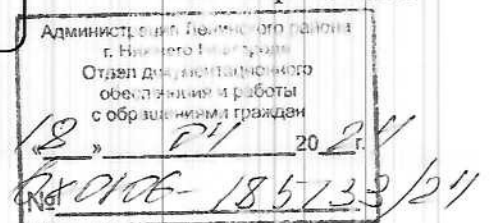 Администрация Ленинского района
г. Нижнего Новгорода
Отдел документационного
обеспечения и работы
с обращениями граждан
« 18 » 04 20 24 г.
№ 185733/24